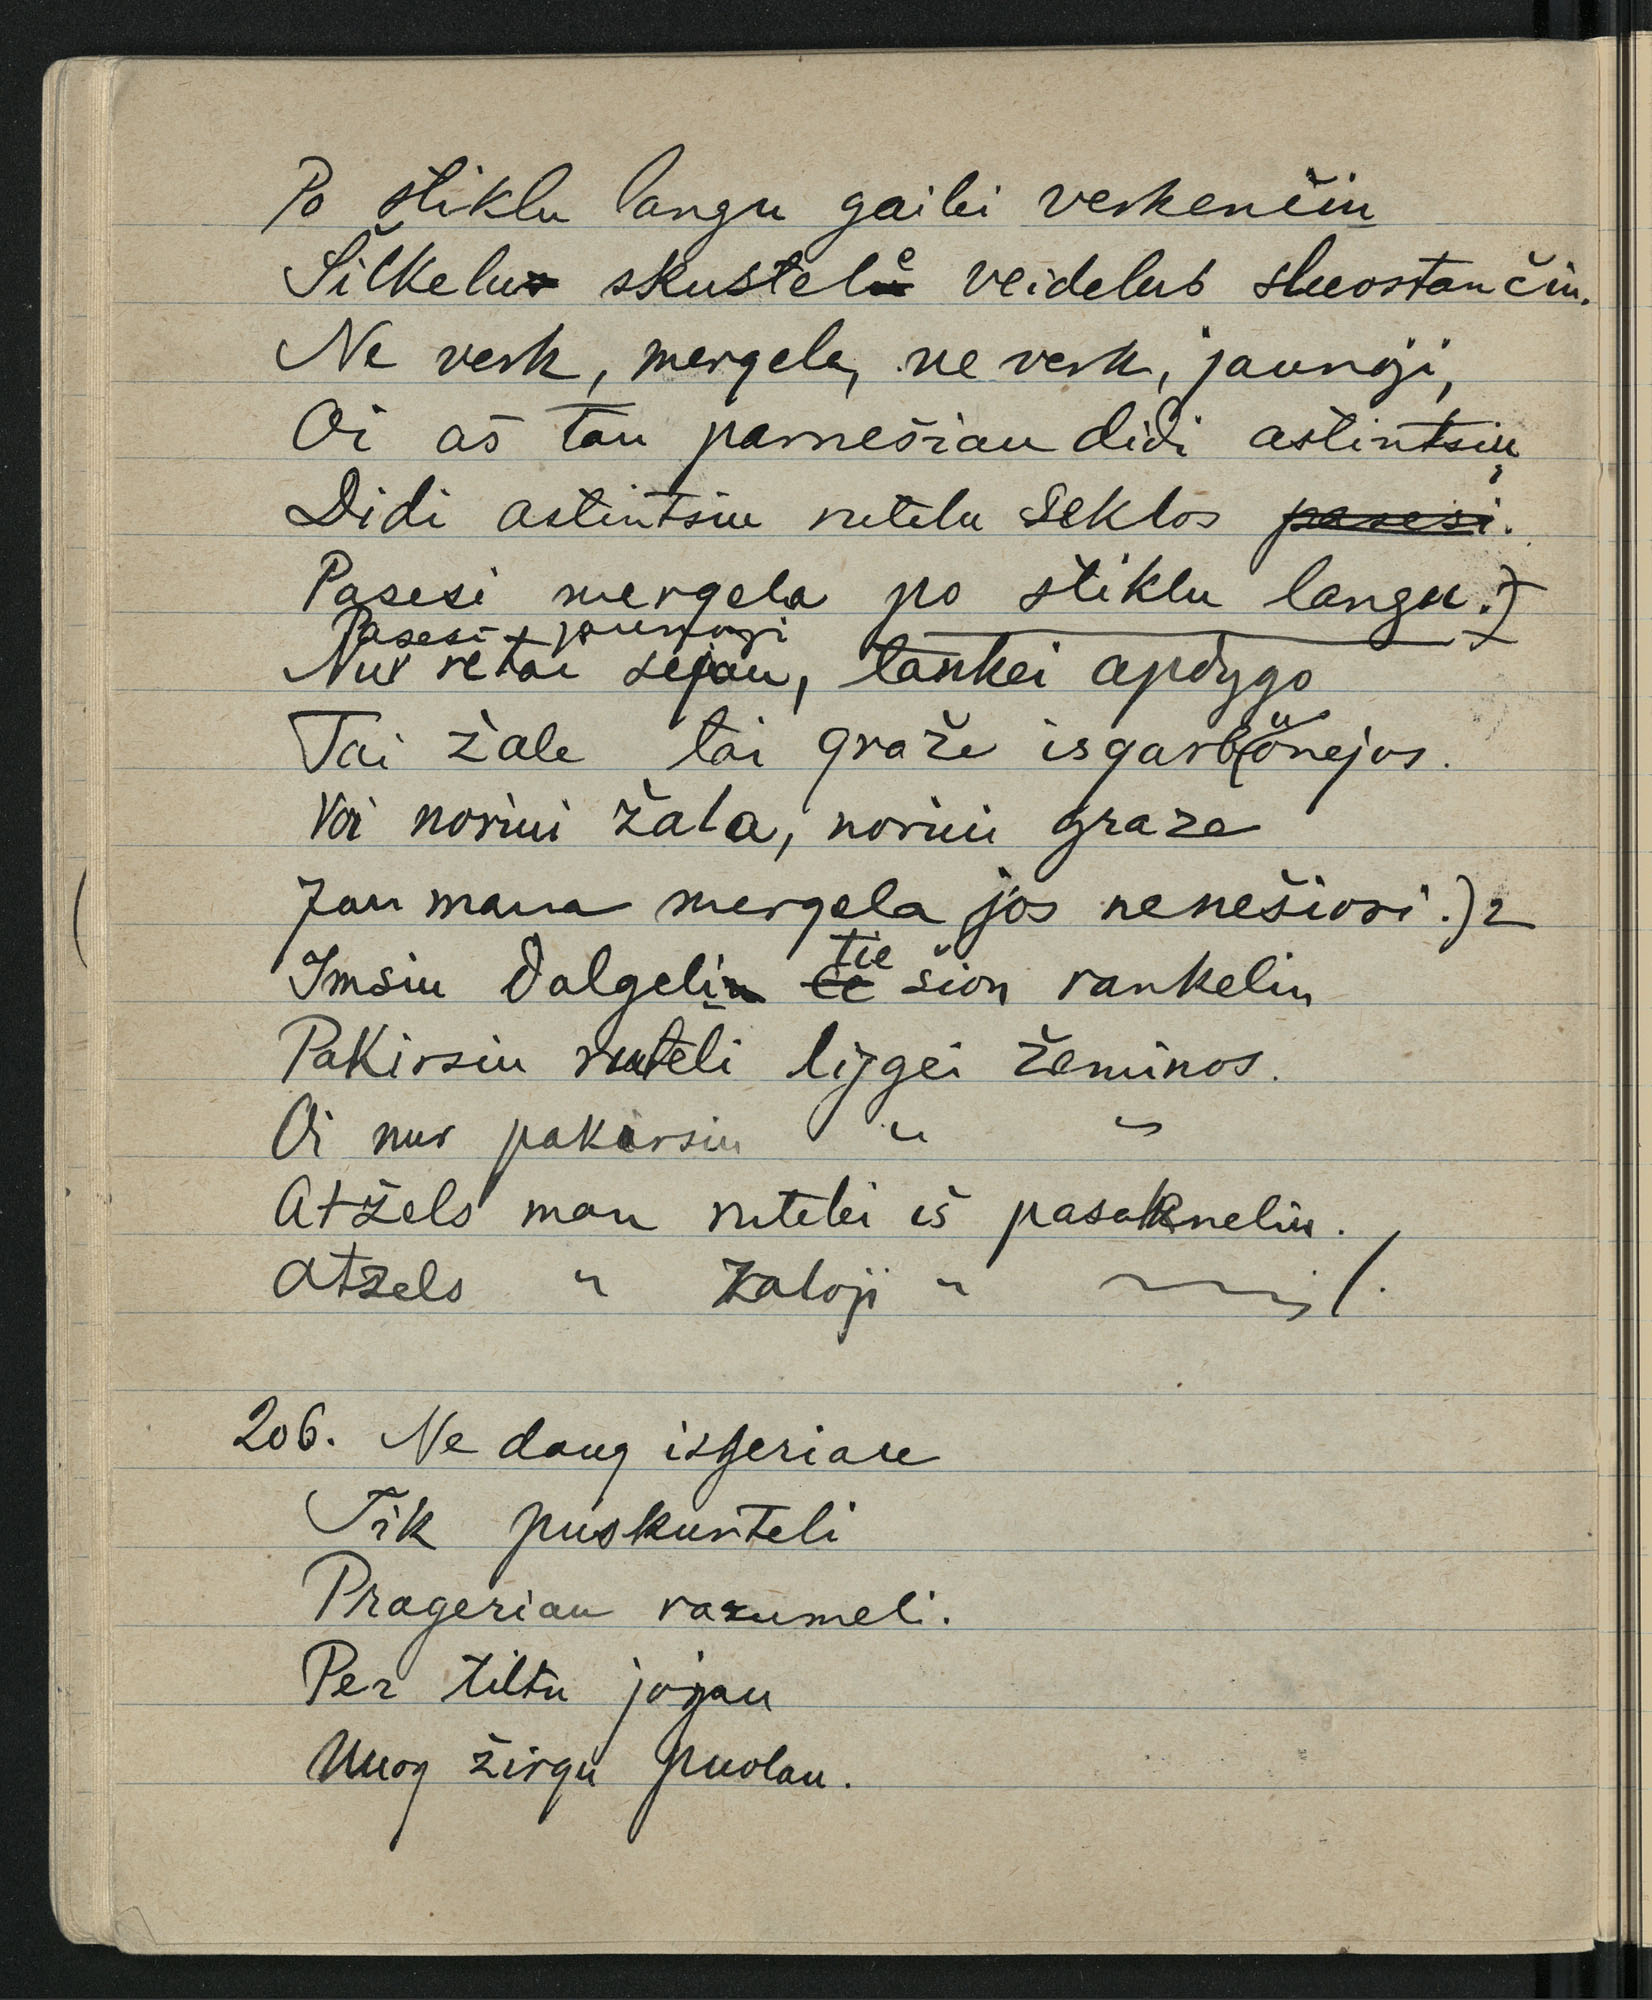 Po stiklu langu gailei verkenčiu
Šilkelu skustele veidelus sluostančiu.
Ne verk, mergela, ne verk, jaunoji,
Oi aš tau parnešiau didi astintsiu,
Didi astintsiu rutelu seklos pasesi.
Pasesi mergela po stiklu langu.)
Pasesi jaunoji
Nur retai sejau, tankei apdygo
Tai žale tai graže isgarbūnejus.
Voi norini žala, norini graze
Jau mana mergela jos nenešiori.)2
Imsiu dalgeli tie šion rankeliu
Pakirsiu ruteli lijgei žeminos.
Oi nur pakirsiu " "
Atžels man rutelei iš pasakneliu.
Atzels " zaloji " /.
206. Ne daug isgeriau
Tik puskurteli
Prageriau razumeli.
Per tiltu jojau
Nuog žirgu puolau.